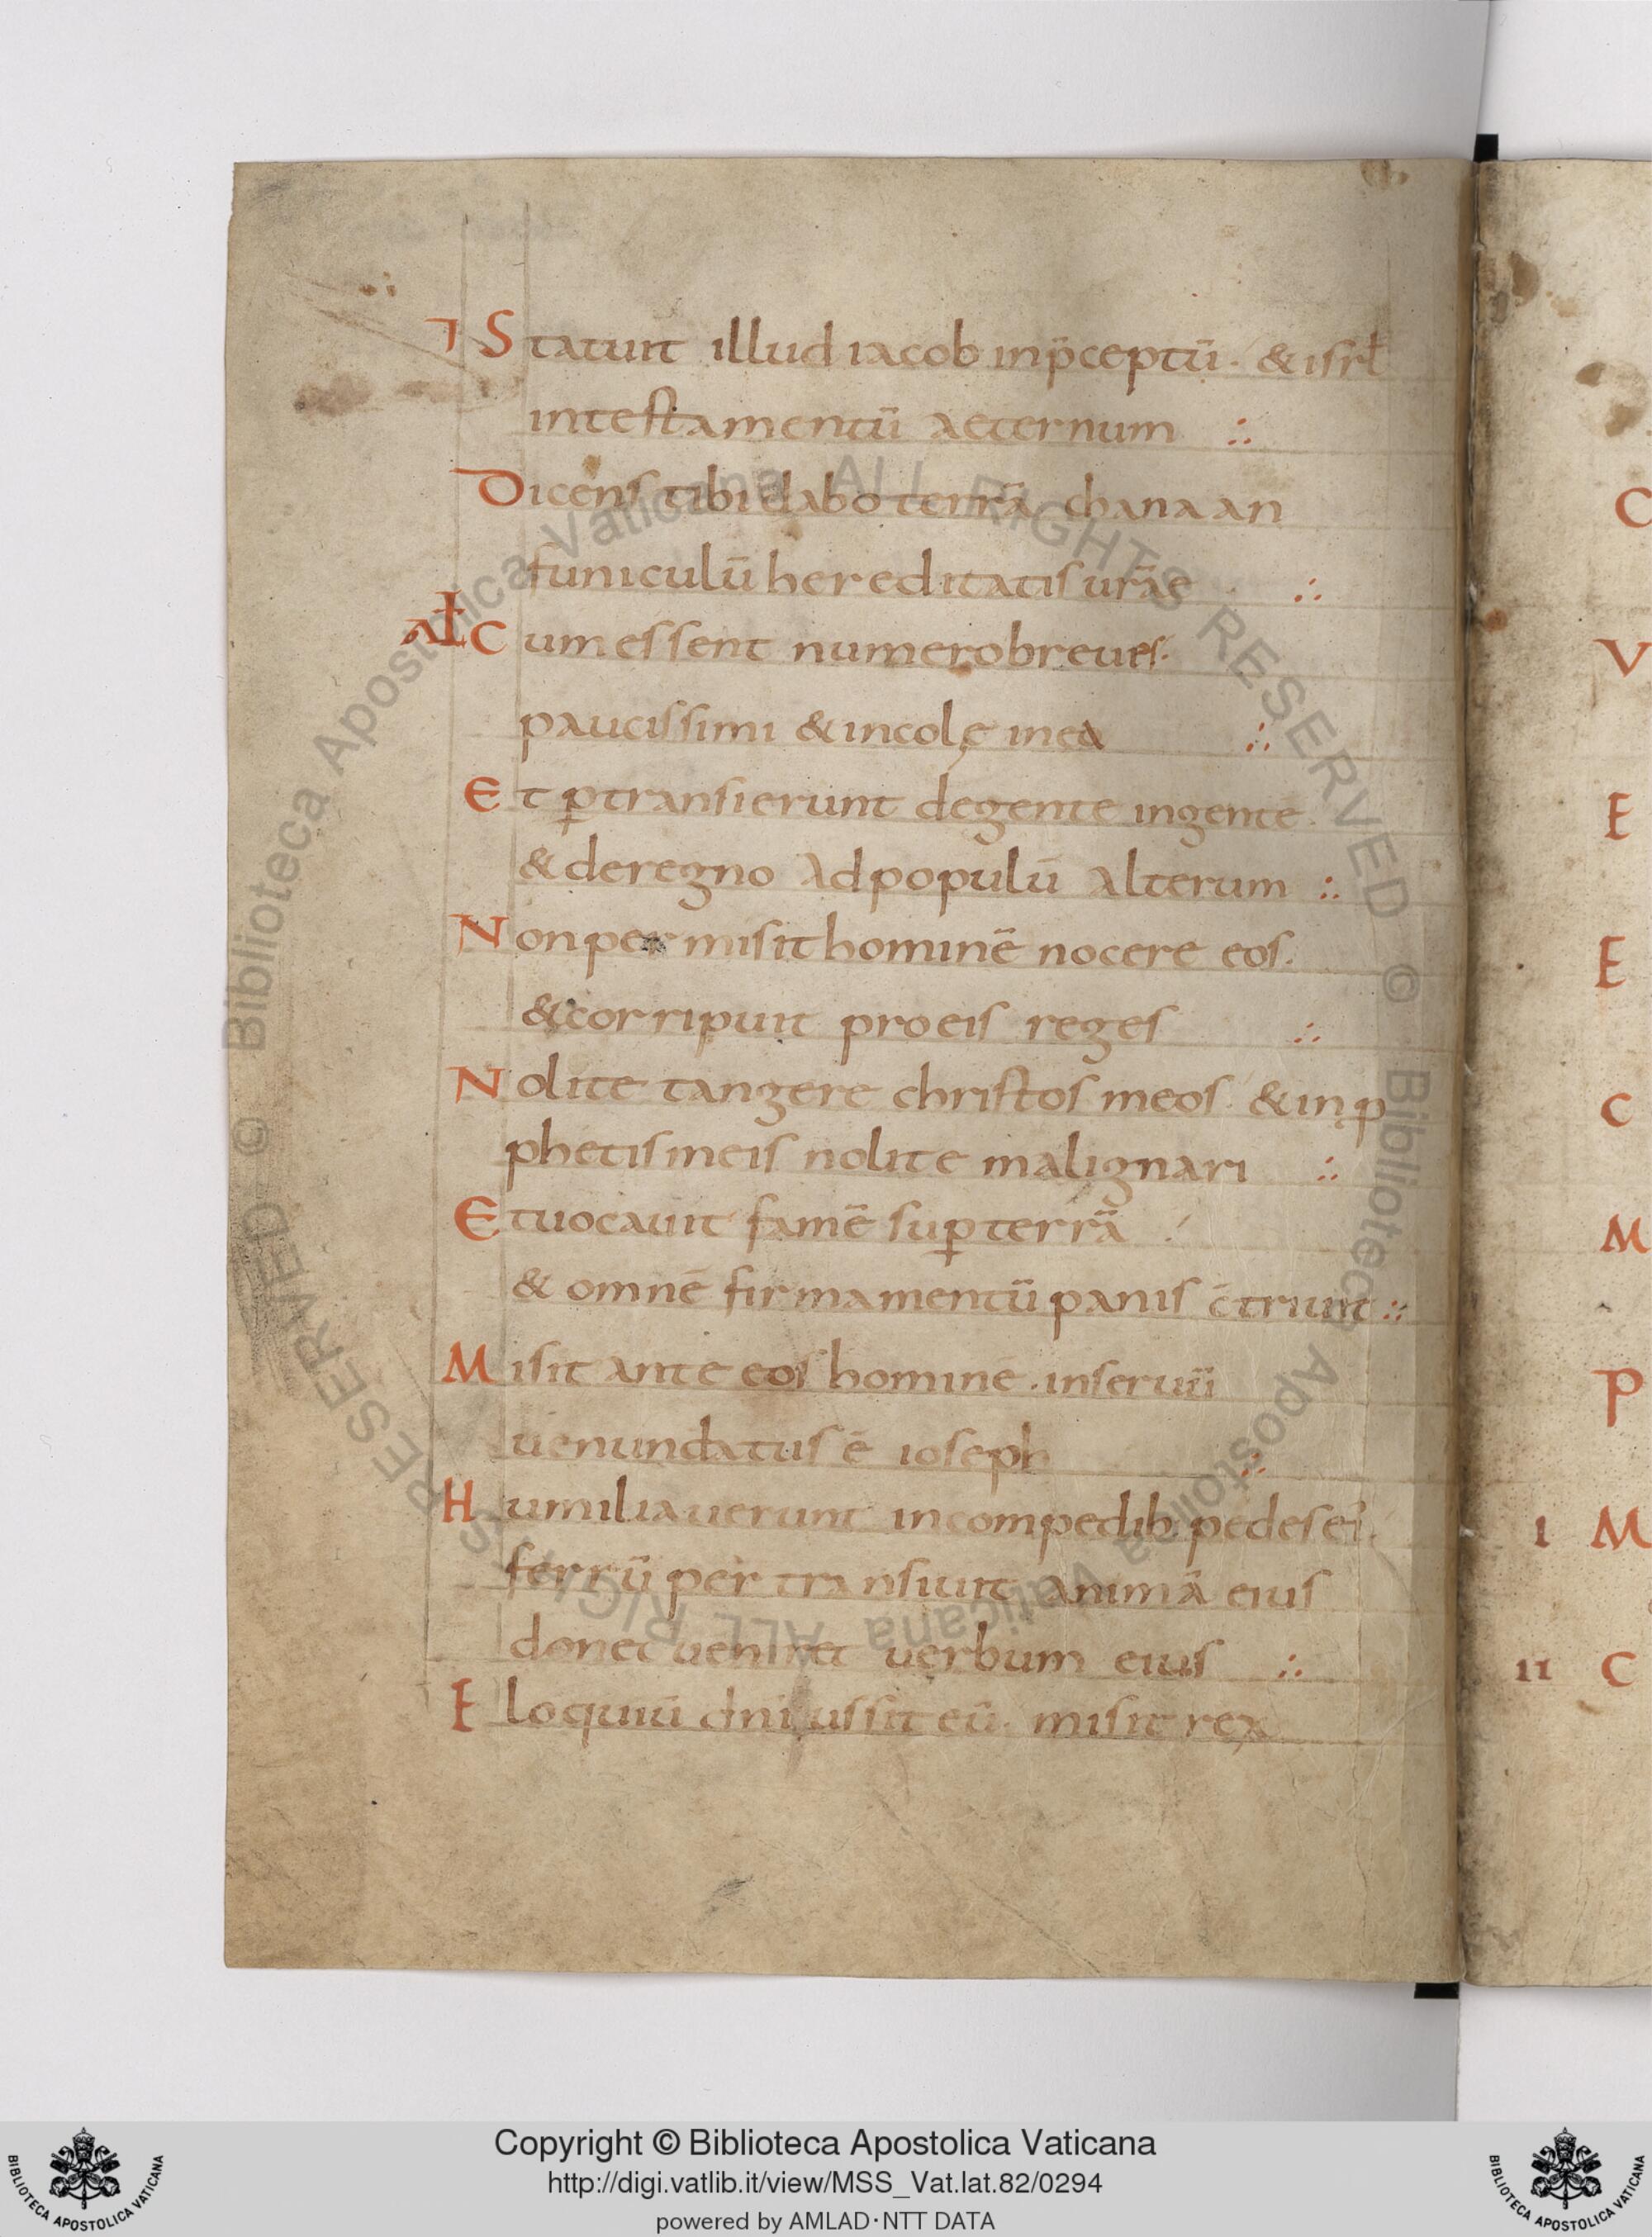 ⁊ Statuit illud iacob inp̄ceptū. & isrł
intestamentū aeternum ∴
Dicens tibi dabo terrā chanaan
funiculū hereditatis urāe ∴
Cum essent numero breues.
paucissimi & incolę inea ∴
Et ꝑtransierunt degente ingente.
& deregno ad populū alterum ∴
Non permisit hominē nocere eos.
& corripuit pro eis reges ∴
Nolite tangere christos meos. & inꝓ
phetis meis nolite malignari ∴
Et uocauit famē suꝑ terrā
& omnē firmamentū panis c̄triuit ∴
Misit ante eos hominē. inseruū
uenundatus ē ioseph ∴
Humiliauerunt incompedib: pedes ei.
ferrū per transiuit animā eius
donecueniret uerbum eius ∴
Eloquiū dn̄i ussit eū. misit rex
C
V
E
E
C
M
P
I M
II C
© Biblioteca Apostolica Vaticana ALL RIGHTS RESERVED © Biblioteca Apostolica Vaticana ALL RIGHTS RESERVED
Copyright © Biblioteca Apostolica Vaticana
http://digi.vatlib.it/view/MSS_Vat.lat.82/0294
powered by AMLAD·NTT DATA
BIBLIOTECA APOSTOLICA VATICANA
BIBLIOTECA APOSTOLICA VATICANA